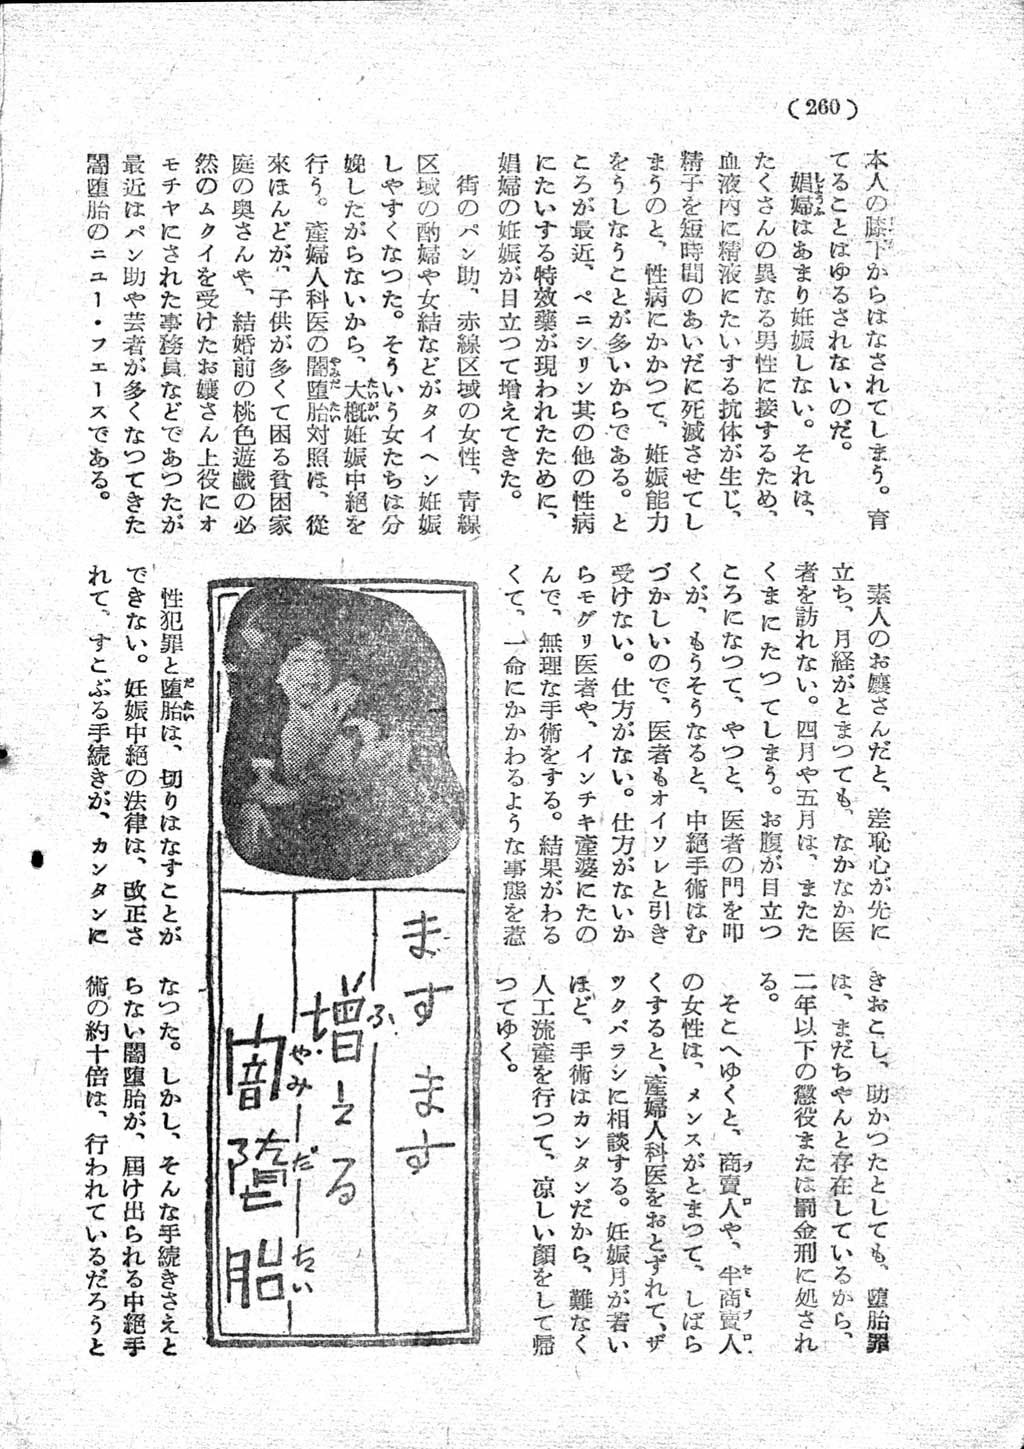 (260)
本人の膝下からはなされてしまう。育
てることはゆるされないのだ。
娼婦はあまり妊娠しない。それは、
たくさんの異なる男性に接するため、
血液内に精液にたいする抗体が生じ、
精子を短時間のあいだに死滅させてし
まうのと、性病にかかつて、妊娠能力
をうしなうことが多いからである。と
ころが最近、ペニシリン其の他の性病
にたいする特效藥が現われたために、
娼婦の妊娠が目立つて増えてきた。
街のパン助、赤線区域の女性、青線
区域の酌婦や女結などがタイヘン妊娠
しやすくなつた。そういう女たちは分
娩したがらないから、大槪妊娠中絶を
行う。産婦人科医の闇堕胎対照は、從
來ほんどが、子供が多くて困る貧困家
庭の奥さんや、結婚前の桃色遊戯の必
然のムクイを受けたお嬢さん上役にオ
モチヤにされた事務員などであつたが
最近はパン助や芸者が多くなつてきた
闇堕胎のニユー・フエースである。
素人のお嬢さんだと、差恥心が先に
立ち、月経がとまつても、なかなか医
者を訪れない。四月や五月は、またた
くまにたつてしまう。お腹が目立つ
ころになつて、やつと、医者の門を叩
くが、もうそうなると、中絶手術はむ
づかしいので、医者もオイソレと引き
受けない。仕方がない。仕方がないか
らモグリ医者や、インチキ産婆にたの
んで、無理な手術をする。結果がわる
くて、一命にかかわるような事態を惹
きおこし、助かつたとしても、堕胎罪
は、まだちやんと存在しているから、
二年以下の懲役または罰金刑に処され
る。
そこへゆくと、商賣人や、半商賣人
の女性は、メンスがとまつて、しばら
くすると、産婦人科医をおとずれて、ザ
ツクバランに相談する。妊娠月が若い
ほど、手術はカンタンだから、難なく
人工流産を行つて、凉しい顔をして帰
つてゆく。
ますます
増える
闇堕胎
性犯罪と堕胎は、切りはなすことが
できない。妊娠中絶の法律は、改正さ
れて、すこぶる手続きが、カンタンに
なつた。しかし、そんな手続きさえと
らない闇堕胎が、屆け出られる中絶手
術の約十倍は、行われているだろうと